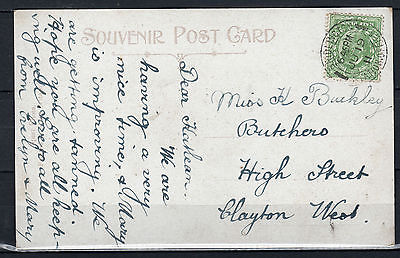 SOUVENIR POST CARD
Dear Kathleen.
We are
having a very
nice time, & Mary
is improving. We
are getting tanned.
Hope you are all keep-
ing well. Love to all
from Evelyn & Mary
Miss K Buckley
Butchers
High Street
Clayton West.